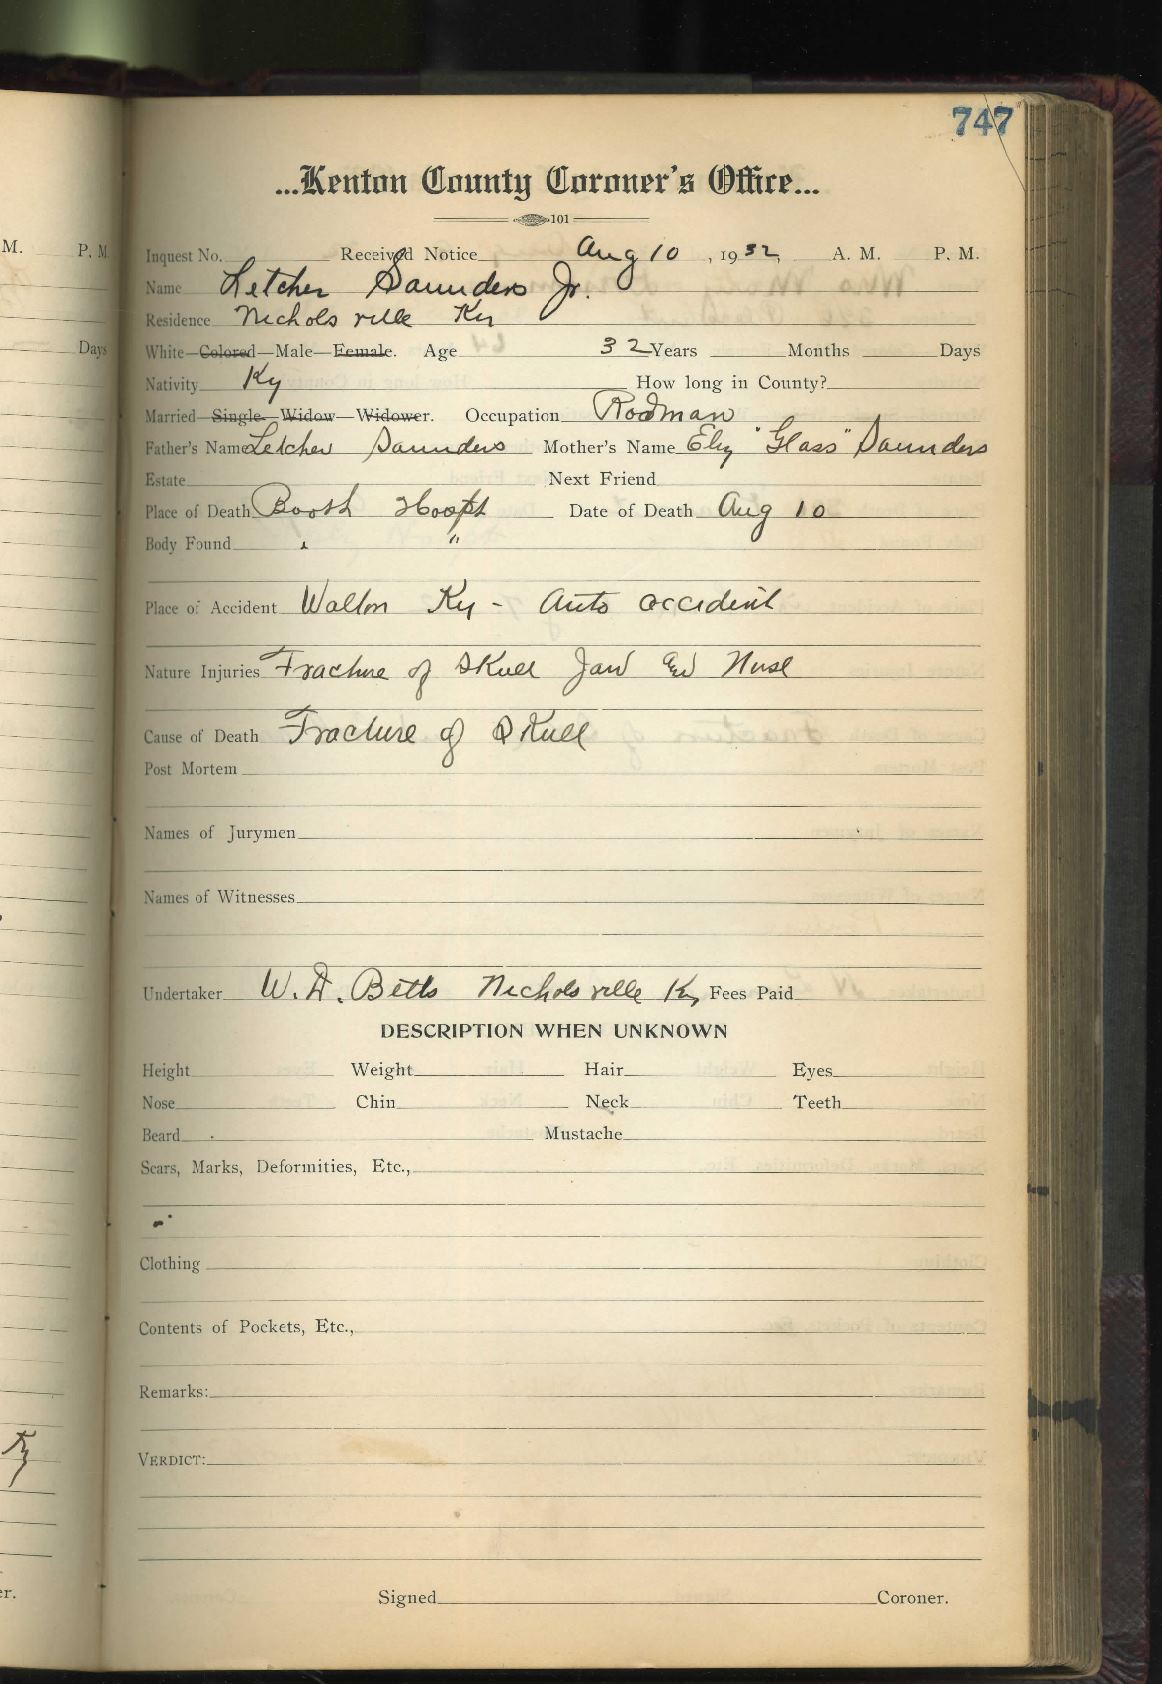 747
...Kenton County Coroner's Office...
101
M. P. M.
Inquest No. Received Notice Aug 10, 1932, A. M. P. M.
Name Letcher Saunders Jr.
Residence Nicholsville Ky
Days
White—Colored—Male—Female. Age 32 Years Months Days
Nativity Ky How long in County?
Married—Single—Widow—Widower. Occupation Rodman
Father's Name Letcher Saunders Mother's Name "Glass" Saunders
Estate Next Friend
Place of Death Booth Hospt Date of Death Aug 10
Body Found " "
Place of Accident Walton Ky - Auto accident
Nature Injuries Fracture of Skull Jaw and Nose
Cause of Death Fracture of Skull
Post Mortem
Names of Jurymen
Names of Witnesses
Undertaker W. D. Betts Nicholsville Ky Fees Paid
DESCRIPTION WHEN UNKNOWN
Height Weight Hair Eyes
Nose Chin Neck Teeth
Beard Mustache
Scars, Marks, Deformities, Etc.,
Clothing
Contents of Pockets, Etc.,
Remarks:
Ky
VERDICT:
er.
Signed Coroner.